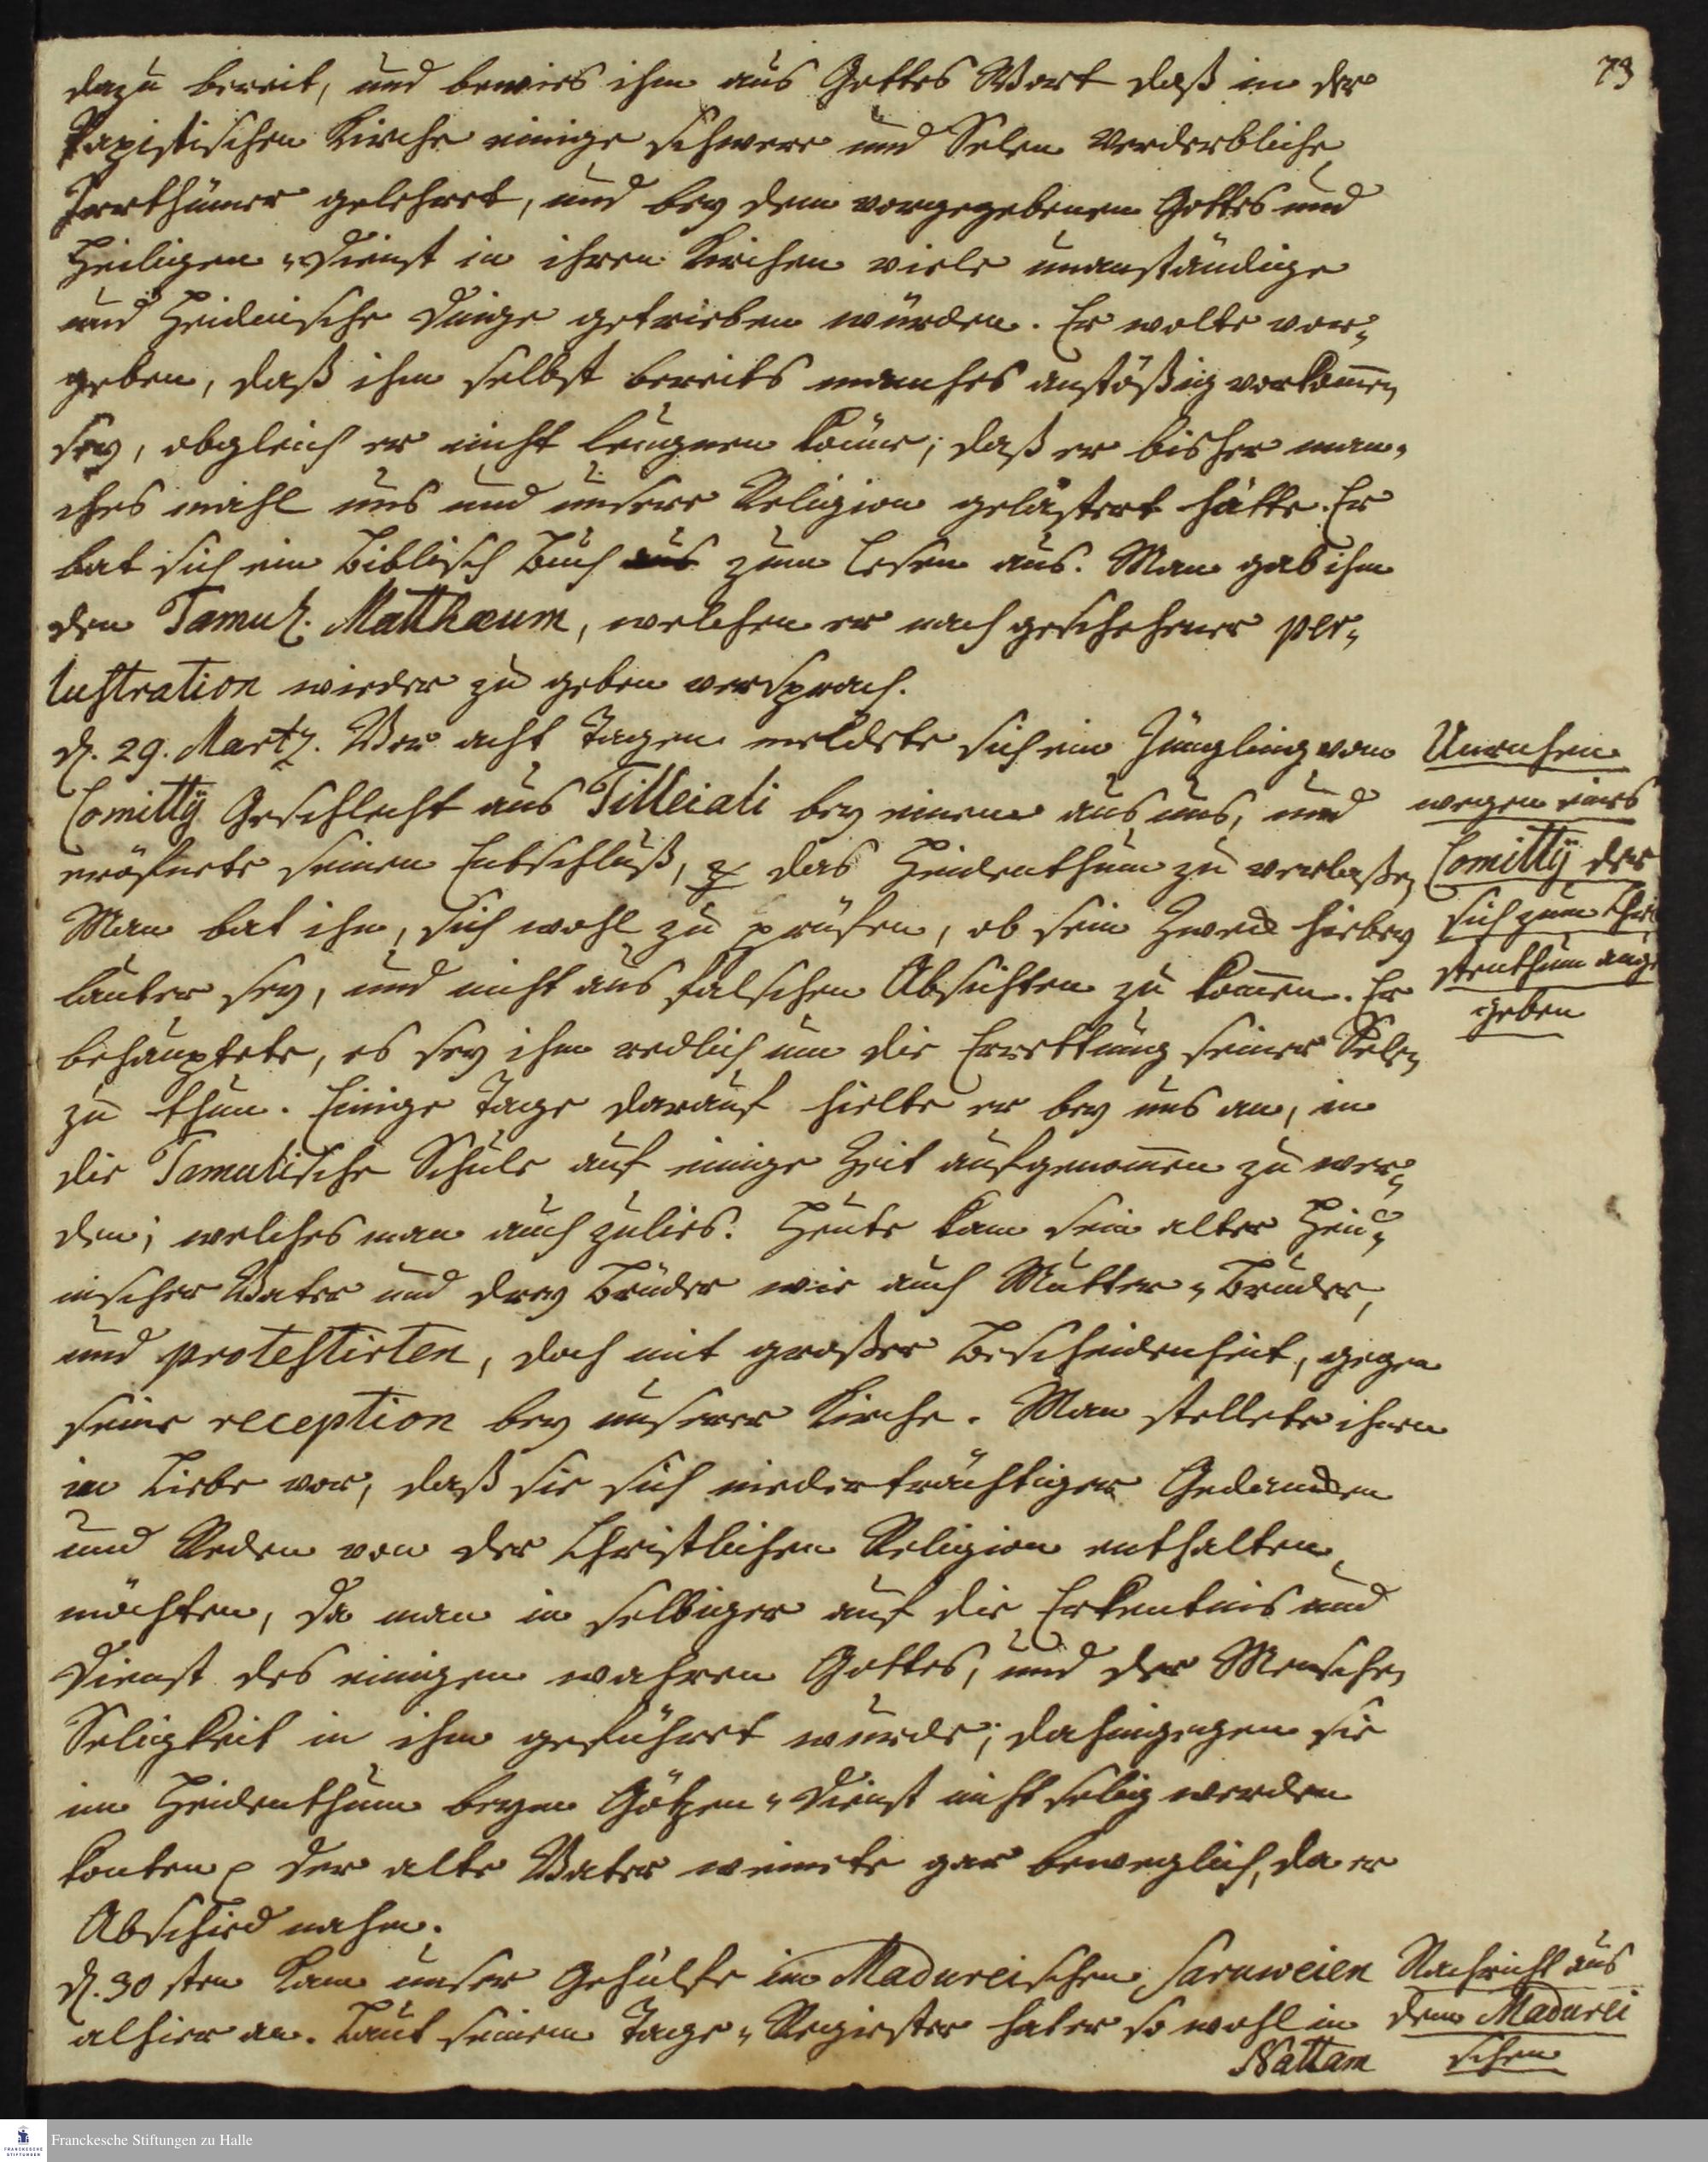 73
dazu bereit, und bewies ihm aus Gottes Wort daß in der
Papistischen Kirche einige schwere und Selen verderbliche
Irrthümer gelehret, und bey dem vorgegebenen Gottes und
Heiligen-Dienst in ihren Kirchen viele unanständige
und Heidnische Dinge getrieben würden. Er wolte vor-
geben, daß ihm selbst bereits manches anstößig vorkom̄en
sey, obgleich er nicht leugnen könne; daß er bisher man-
ches mahl uns und unsere Religion gelästert hätte. Er
bat sich ein Biblisch Buch aus zum Lesen aus. Man gab ihm
den Tamul. Matthæum, welchen er nach geschehener per-
lustration wieder zu geben versprach.
d. 29. Martz. Vor acht Tagen meldete sich ein Jüngling vom
Comittÿ Geschlecht aus Tilleiali bey einem aus uns, und
eröfnete seinen Entschluß, das Heidenthum zu verlaßen
Man bat ihn, sich wohl zu prüfen, ob sein Zweck hiebey
lauter sey, und nicht aus falschen Absichten zu kom̄en. Er
behauptete, es sey ihm redlich um die Errettung seiner Selen
zu thun. Einige Tage darauf hielte er bey uns an, in
die Tamulische Schule auf einige Zeit aufgenom̄en zu wer-
den; welches man auch zulies. Heute kam sein alter Heid-
nischer Vater und drey Brüder wie auch Mutter-Bruder,
und protestirten, doch mit großer Bescheidenheit, gegen
seine reception bey unserer Kirche. Man stellete ihnen
in Liebe vor, daß sie sich niederträchtiger Gedancken
und Reden von der Christlichen Religion enthalten
möchten, da man in selbiger auf die Erkentnis und
Dienst des einigen wahren Gottes, und der Menschen
Seligkeit in ihm geführet würde; dahingegen sie
im Heidenthum beym Götzen-Dienst nicht selig werden
konten der alte Vater weinete gar beweglich, da er
Abschied nahm.
d. 30 sten kam unser Gehülfe im Madureischen Saruweien
alhier an. Laut seinem Tage-Register hat er so wohl in
Nattam
Unruhen
wegen eines
Comittÿ der
sich zum Chri
stenthum ange
geben
Nachricht aus
dem Madurei
schen
Franckesche Stiftungen zu Halle